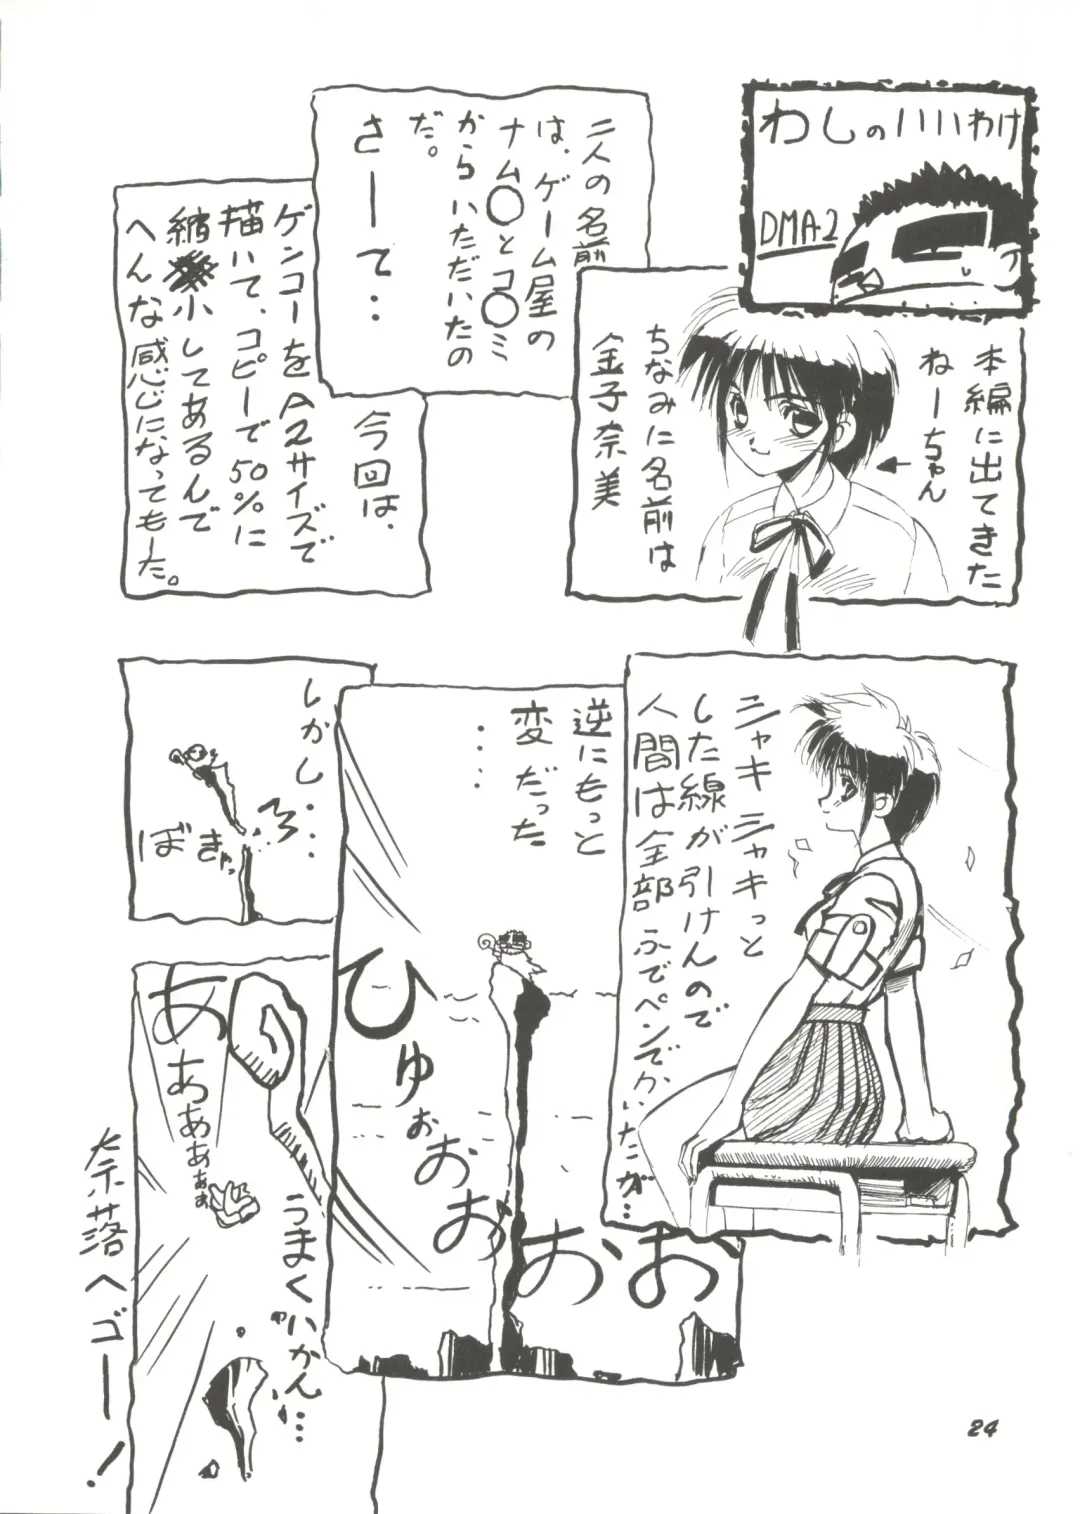 わしのいいわけ
DMA-2
本編に出てきた
ねーちゃん
ちなみに名前は
金子奈美
二人の名前
は、ゲーム屋の
ナム○とコ○ミ
からいただいたの
だ。
さーて‥
今回は、
ゲンコーをA2サイズで
描いて、コピーで50%に
縮小してあるんで
へんな感じになってもーた。
シャキシャキっと
した線が引けんので
人間は全部ふでペンでかいたが…
逆にもっと
変だった
‥‥
ひゅぉおおおおお
しかし‥‥
ぼきゃっ
あああああぁぁ
うまくいかん…
奈落へゴー!
24